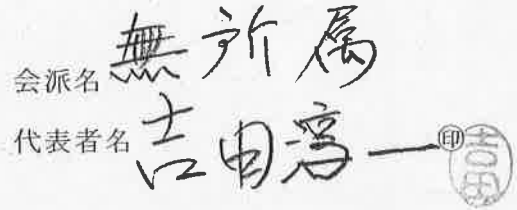 会派名 無所属
代表者名 吉田淳一 ㊞ 吉田